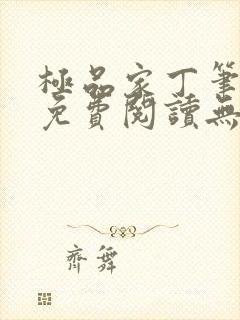 極品家丁筆
免費閱讀無
齊舞